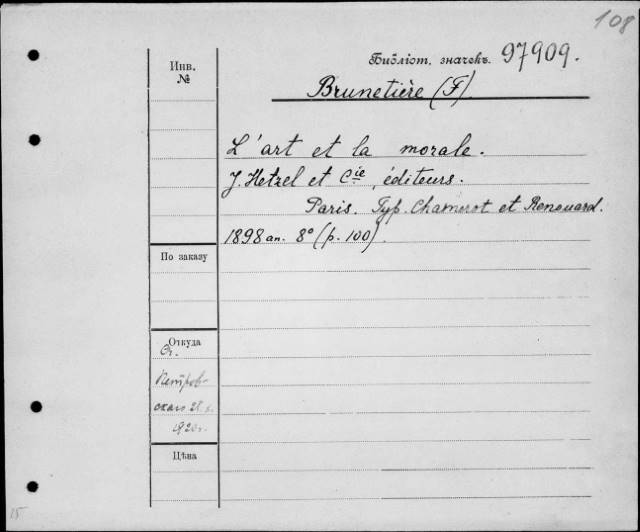 108
Библіот. значекъ 97909.
Инв.
№
Brunetière (F).
L'art et la morale.
J. Hetzel et Cie, éditeurs.
Paris. Typ. Chamerot et Renouard.
1898 an. 8° (p. 100).
По заказу
Откуда
От.
Петров-
скаго 28.
1920 г.
Цѣна
15